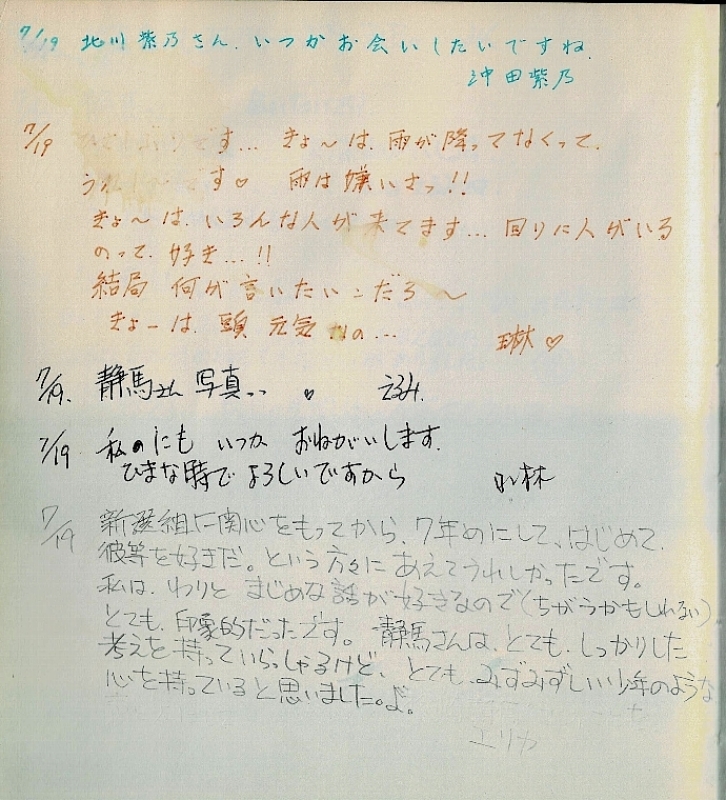 7/19 北川紫乃さん、いつかお会いしたいですね。
沖田紫乃
7/19 ひさしぶりです… きょ〜は、雨が降ってなくって、
うれしーです♡ 雨は嫌いさっ!!
きょ〜は、いろんな人が来てます… 回りに人がいる
のって、好き…!!
結局 何が言いたいんだろ〜
きょーは、頭 元気なの…
琳♡
7/19. 静馬さん 写真… ♡ えみ.
7/19 私のにも いつか おねがいします.
ひまな時でよろしいですから
林
7/19 新選組に関心をもってから、7年めにして、はじめて、
彼等を好きだ。という方々に あえてうれしかったです。
私は、わりと まじめな話が好きなので(ちがうかもしれない)
とても、印象的だったです。静馬さんは、とても、しっかりした
考えを持っていらっしゃるけど、とても、みずみずしい少年のような
心を持っていると思いました。よ。
エリカ